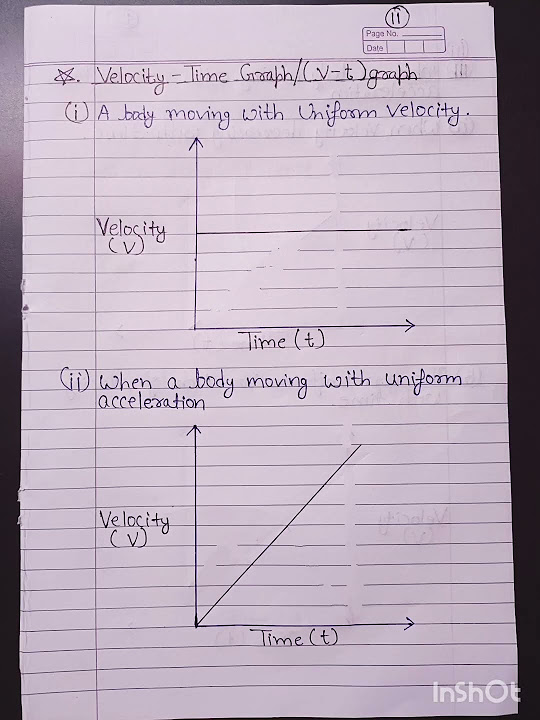 11
Page No.
Date
☆. Velocity - Time Graph/(V-t) graph
(i) A body moving with Uniform Velocity.
Velocity
(V)
Time (t)
(ii) When a body moving with uniform
acceleration
Velocity
(V)
Time (t)
InShOt